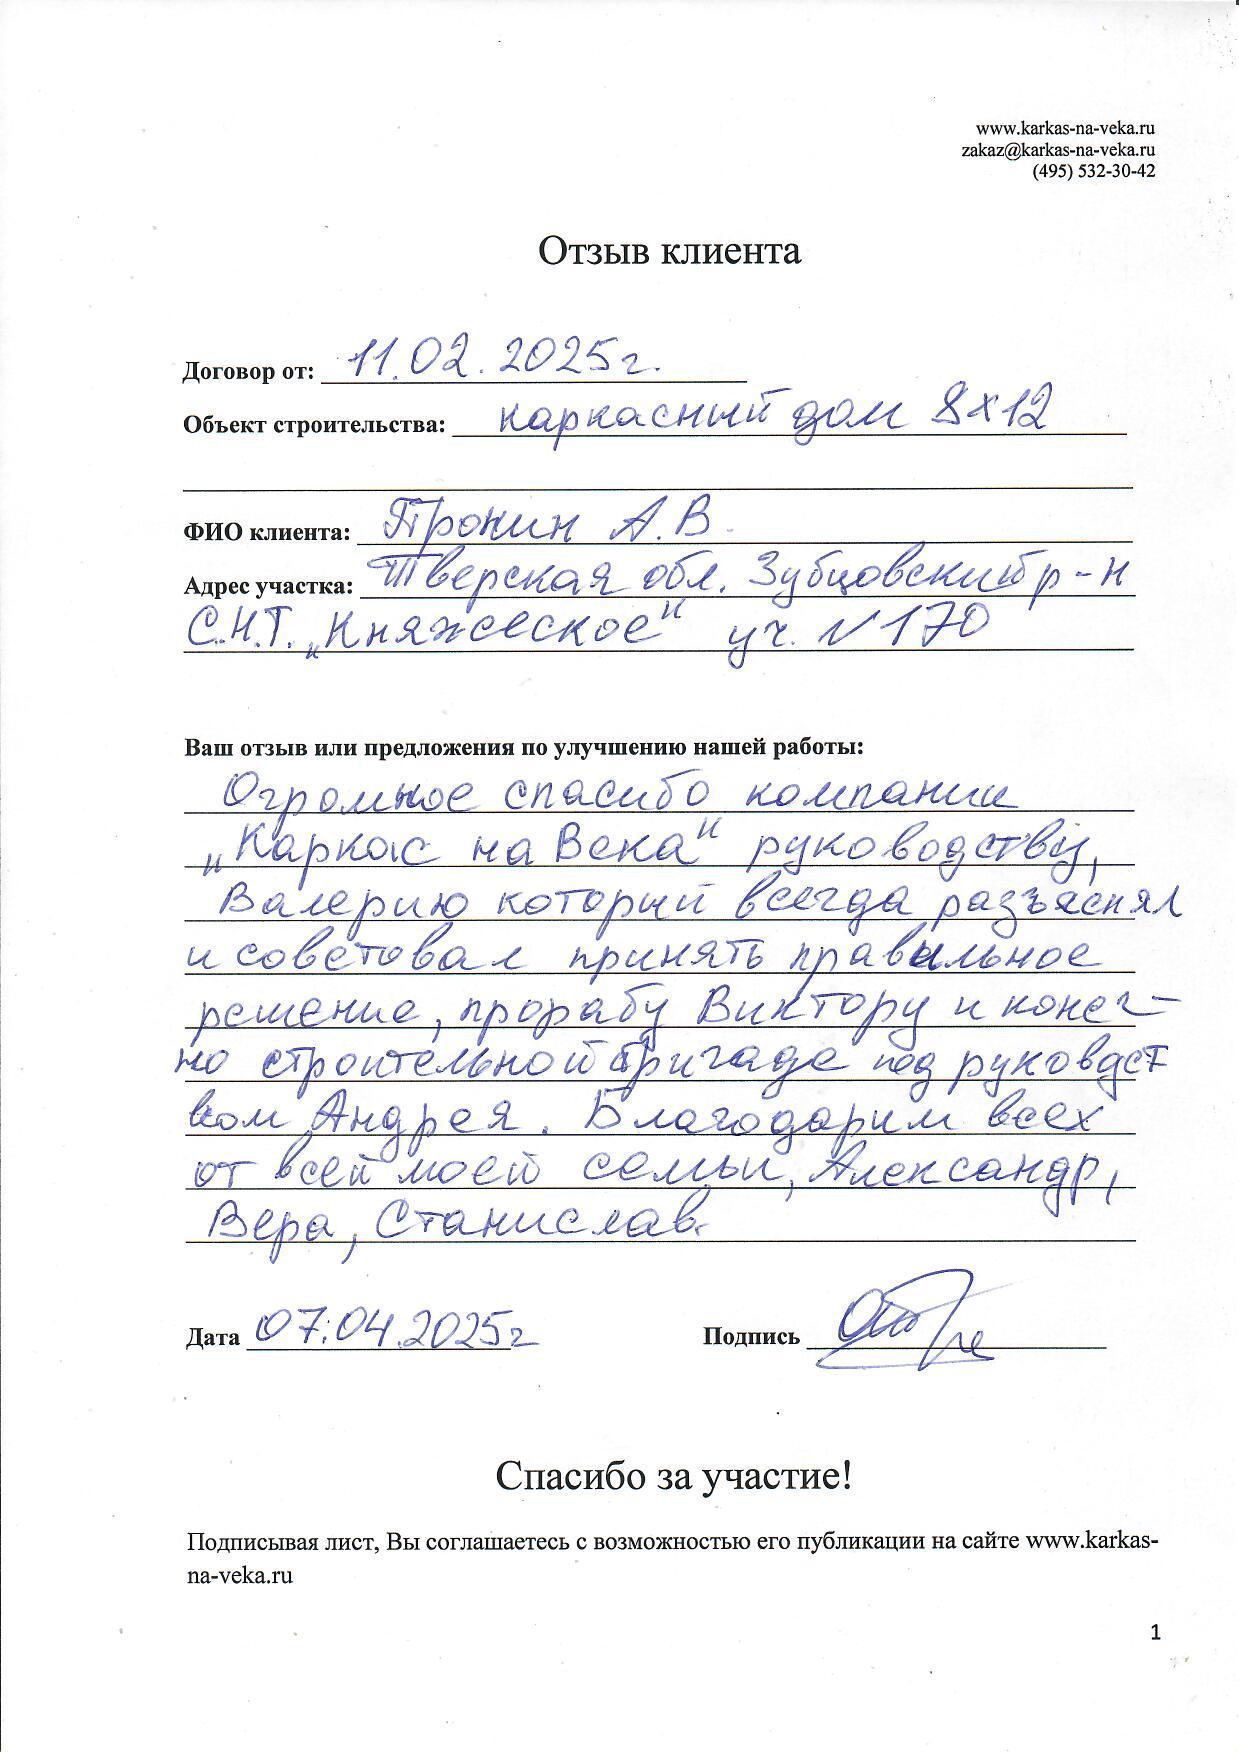 www.karkas-na-veka.ru
zakaz@karkas-na-veka.ru
(495) 532-30-42
Отзыв клиента
Договор от: 11.02.2025г.
Объект строительства: каркасный дом 8х12
ФИО клиента: Пронин А.В
Адрес участка: Тверская обл. Зубцовский р-н
С.Н.Т. „Княжеское" уч. №170
Ваш отзыв или предложения по улучшению нашей работы:
Огромное спасибо компании
„Каркас на Века" руководству,
Валерию который всегда разъяснял
и советовал принять правильное
решение, прорабу Виктору и конеч-
но строительной бригаде под руководст
вом Андрея. Благодарим всех
от всей моей семьи, Александр,
Вера, Станислав.
Дата 07.04.2025г Подпись
Спасибо за участие!
Подписывая лист, Вы соглашаетесь с возможностью его публикации на сайте www.karkas-
na-veka.ru
1